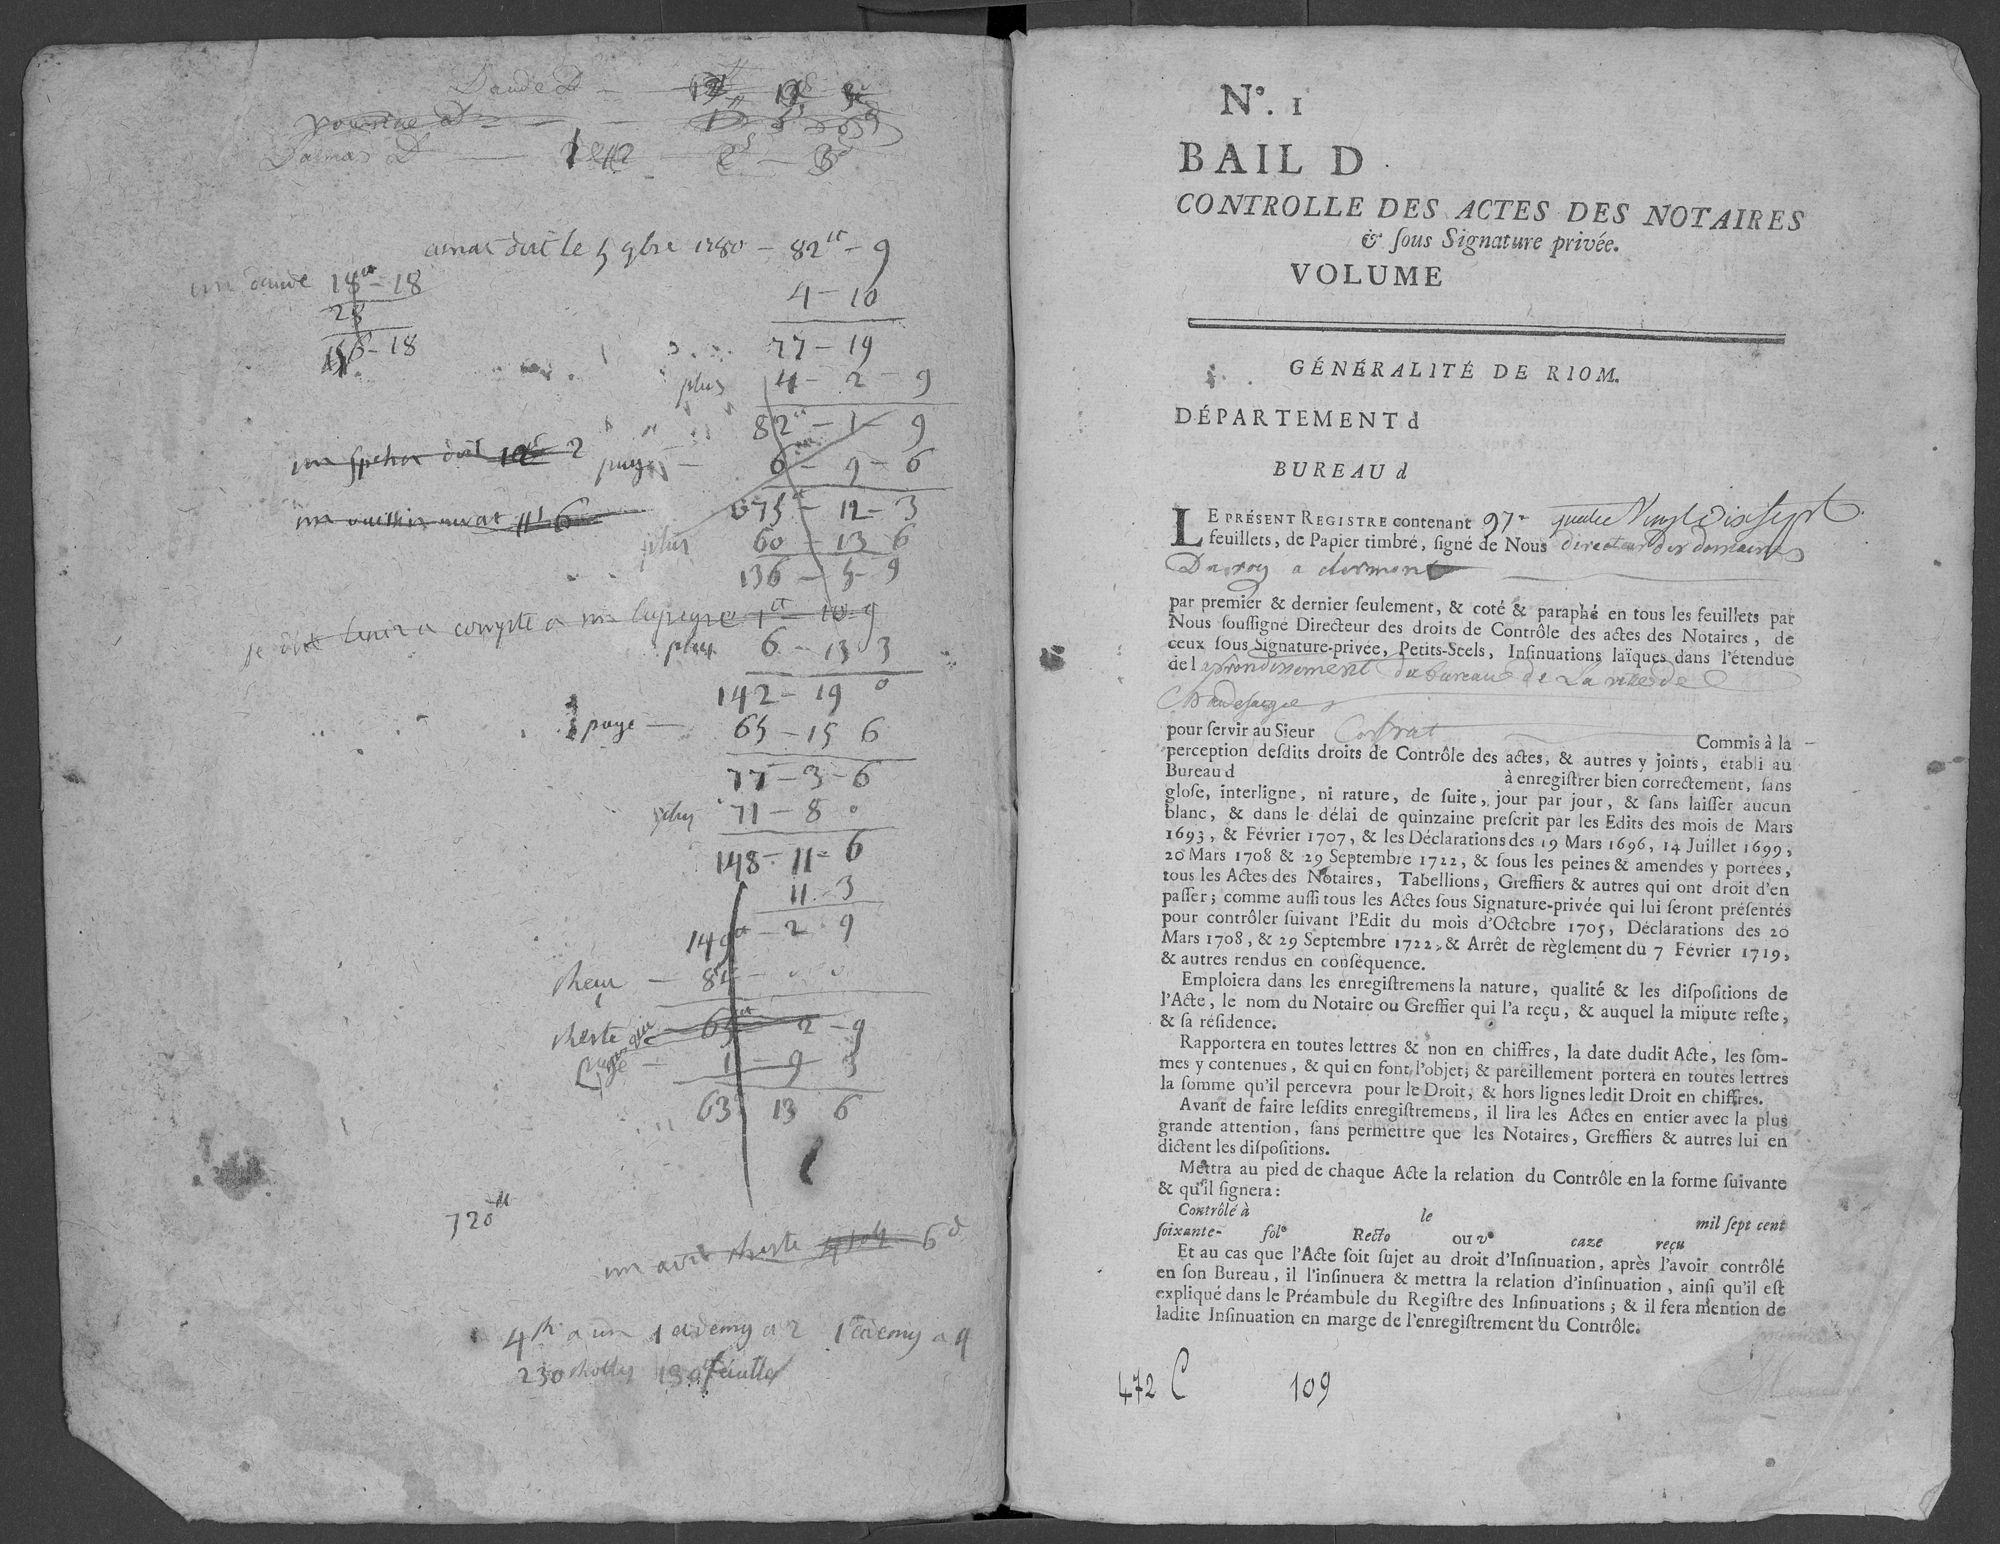 Daude D
Dalmas D
doit le 5 9bre 1780 - 82tt - 9
4 - 10
mr daude 18tt - 18
28
77 - 19
plus 4 - 2 - 9
82tt - 1 - 9
6 - 9 - 6
75 - 12 - 3
plus 60 - 13 6
136 - 5 - 9
compte a mr 1tt - 10 - 9
plus 6 - 13 3
142 - 19 0
paye - 65 - 15 6
77 - 3 - 6
plus 71 - 8 0
148 - 11 - 6
11 - 3
149tt - 2 - 9
Reçu -
Reste 2 - 9
1 - 9 - 3
63 13 6
720tt
reste 6d
N°. 1
BAIL D
CONTROLLE DES ACTES DES NOTAIRES
& ſous Signature privée.
VOLUME
GÉNÉRALITÉ DE RIOM.
DÉPARTEMENT d
BUREAU d
LE PRÉSENT REGISTRE contenant 97 quatre Vingt Dix sept
feuillets, de Papier timbré, ſigné de Nous directeur des domaines
Du roy a clermont
par premier & dernier ſeulement, & coté & paraphé en tous les feuillets par
Nous ſouſſigné Directeur des droits de Contrôle des actes des Notaires, de
ceux ſous Signature-privée, Petits-Scels, Inſinuations laïques dans l'étendue
de l arrondissement du bureau de La ville de
Chaudesaigues
pour ſervir au Sieur Commis à la
perception deſdits droits de Contrôle des actes, & autres y joints, établi au
Bureau d à enregiſtrer bien correctement, ſans
gloſe, interligne, ni rature, de ſuite, jour par jour, & ſans laiſſer aucun
blanc, & dans le délai de quinzaine preſcrit par les Edits des mois de Mars
1693, & Février 1707, & les Déclarations des 19 Mars 1696, 14 Juillet 1699,
20 Mars 1708 & 29 Septembre 1722, & ſous les peines & amendes y portées,
tous les Actes des Notaires, Tabellions, Greffiers & autres qui ont droit d'en
paſſer; comme auſſi tous les Actes ſous Signature-privée qui lui ſeront préſentés
pour contrôler ſuivant l'Edit du mois d'Octobre 1705, Déclarations des 20
Mars 1708, & 29 Septembre 1722, & Arrêt de règlement du 7 Février 1719,
& autres rendus en conſéquence.
Emploiera dans les enregiſtremens la nature, qualité & les diſpoſitions de
l'Acte, le nom du Notaire ou Greffier qui l'a reçu, & auquel la minute reſte,
& ſa réſidence.
Rapportera en toutes lettres & non en chiffres, la date dudit Acte, les ſom-
mes y contenues, & qui en font l'objet; & pareillement portera en toutes lettres
la ſomme qu'il percevra pour le Droit, & hors lignes ledit Droit en chiffres.
Avant de faire leſdits enregiſtremens, il lira les Actes en entier avec la plus
grande attention, ſans permettre que les Notaires, Greffiers & autres lui en
dictent les diſpoſitions.
Mettra au pied de chaque Acte la relation du Contrôle en la forme ſuivante
& qu'il ſignera:
Contrôlé à le mil ſept cent
ſoixante- fol° Recto ou v° caze reçu
Et au cas que l'Acte ſoit ſujet au droit d'Inſinuation, après l'avoir contrôlé
en ſon Bureau, il l'inſinuera & mettra la relation d'inſinuation, ainſi qu'il eſt
expliqué dans le Préambule du Regiſtre des Inſinuations; & il fera mention de
ladite Inſinuation en marge de l'enregiſtrement du Contrôle.
472 C 109